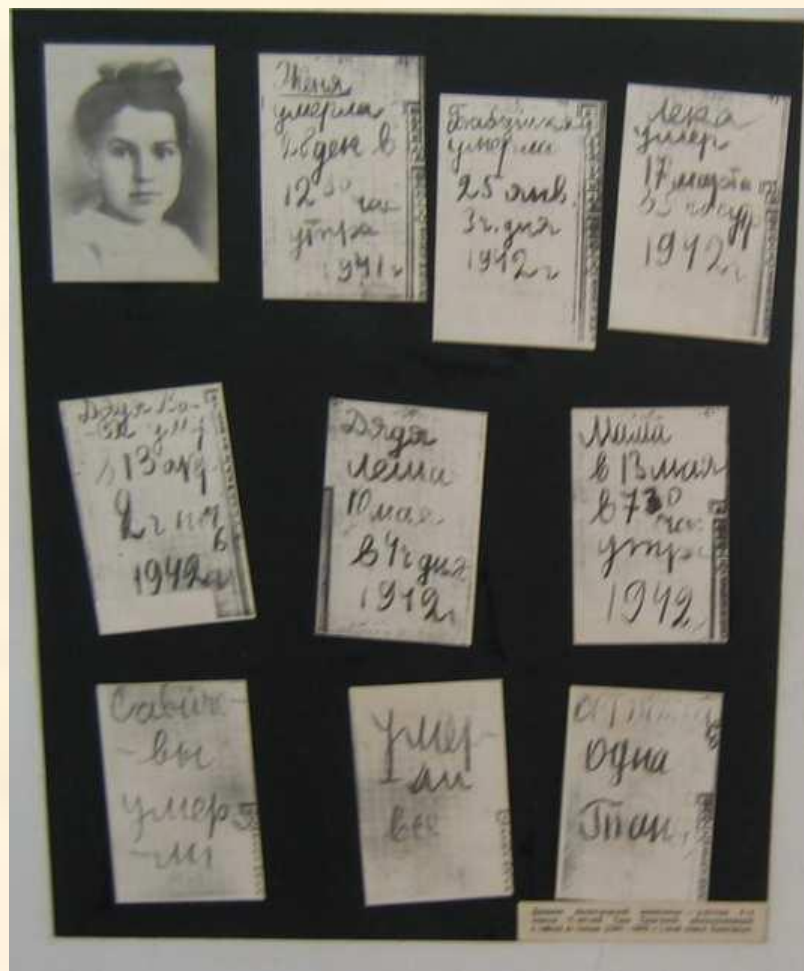 Женя
умерла
28 дек в
12 30 час
утра
1941 г
Бабушка
умерла
25 янв.
3 ч. дня
1942 г
Лека
умер
17 марта
в 5 час утр
1942 г
Дядя Ва-
ся ум
в 13 апр
2 ч ноч
1942 г
Дядя
Леша
10 мая
в 4 ч дня
1942 г
Мама
в 13 мая
в 7 30
час
утра
1942
Савиче-
-вы
умер
-ли
умер-
-ли
все
одна
Таня